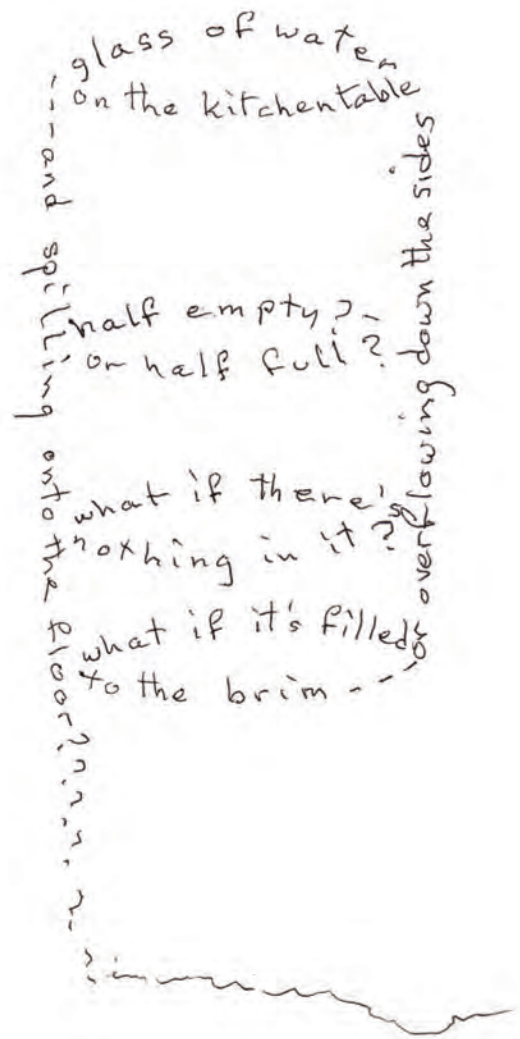 glass of water
on the kitchentable
half empty?
or half full?
what if there's
nothing in it?
what if it's filled
to the brim---
or overflowing down the sides
---and spilling onto the floor?